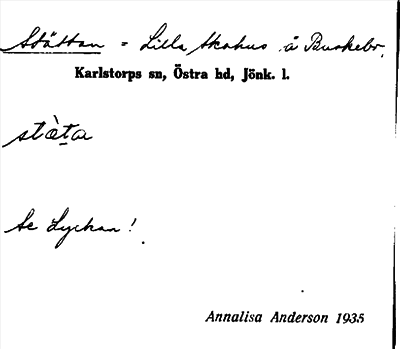 Stättan = Lilla Skahus å Buskebo.
Karlstorps sn, Östra hd, Jönk. l.
stàta
Se Lyckan!
Annalisa Anderson 1935